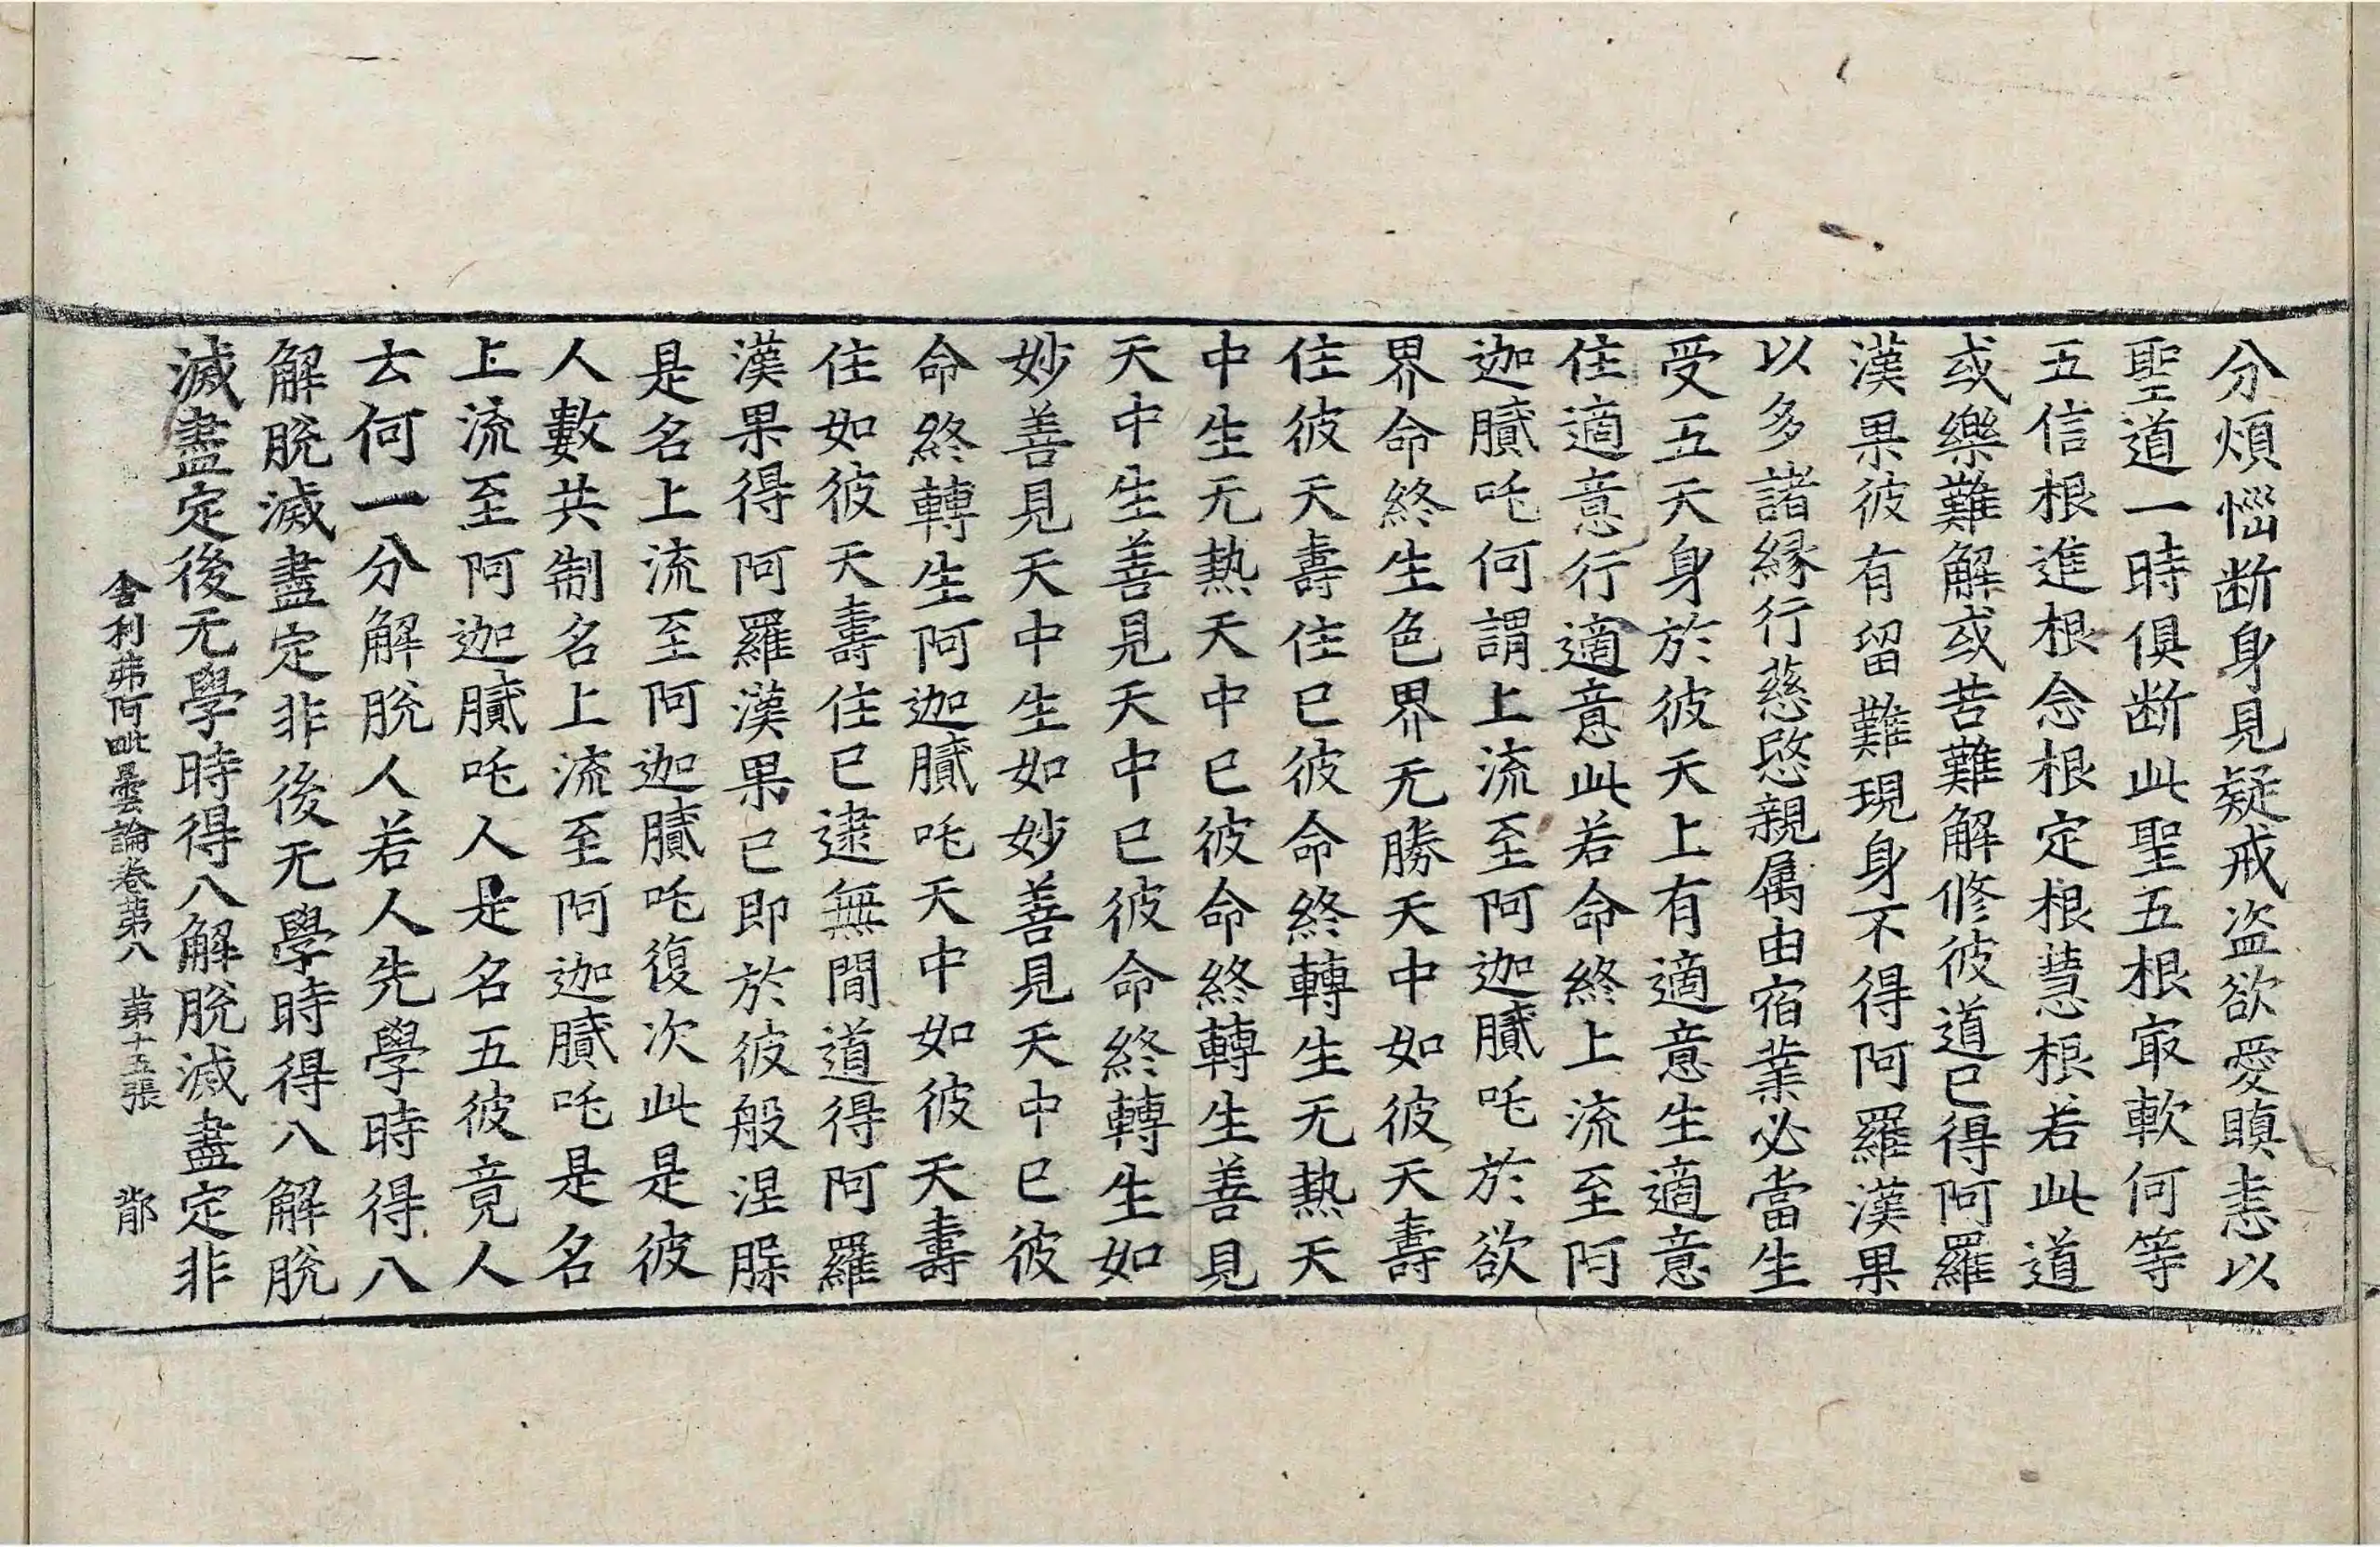 分煩惱断身見疑戒盗欲愛瞋恚以
聖道一時俱断此聖五根㝡軟何等
五信根進根念根定根慧根若此道
或樂難解或苦難解修彼道已得阿羅
漢果彼有留難現身不得阿羅漢果
以多諸緣行慈愍親属由宿業必當生
受五天身於彼天上有適意生適意
住適意行適意此若命終上流至阿
迦膩吒何謂上流至阿迦膩吒於欲
界命終生色界无勝天中如彼天壽
住彼天壽住已彼命終轉生无熱天
中生无熱天中已彼命終轉生善見
天中生善見天中已彼命終轉生如
妙善見天中生如妙善見天中已彼
命終轉生阿迦膩吒天中如彼天壽
住如彼天壽住已逮無間道得阿羅
漢果得阿羅漢果已即於彼般涅槃
是名上流至阿迦膩吒復次此是彼
人數共制名上流至阿迦膩吒是名
上流至阿迦膩吒人是名五彼竟人
云何一分解脫人若人先學時得八
解脫滅盡定非後无學時得八解脫
滅盡定後无學時得八解脫滅盡定非
舍利弗阿毗曇論卷第八 第十五張